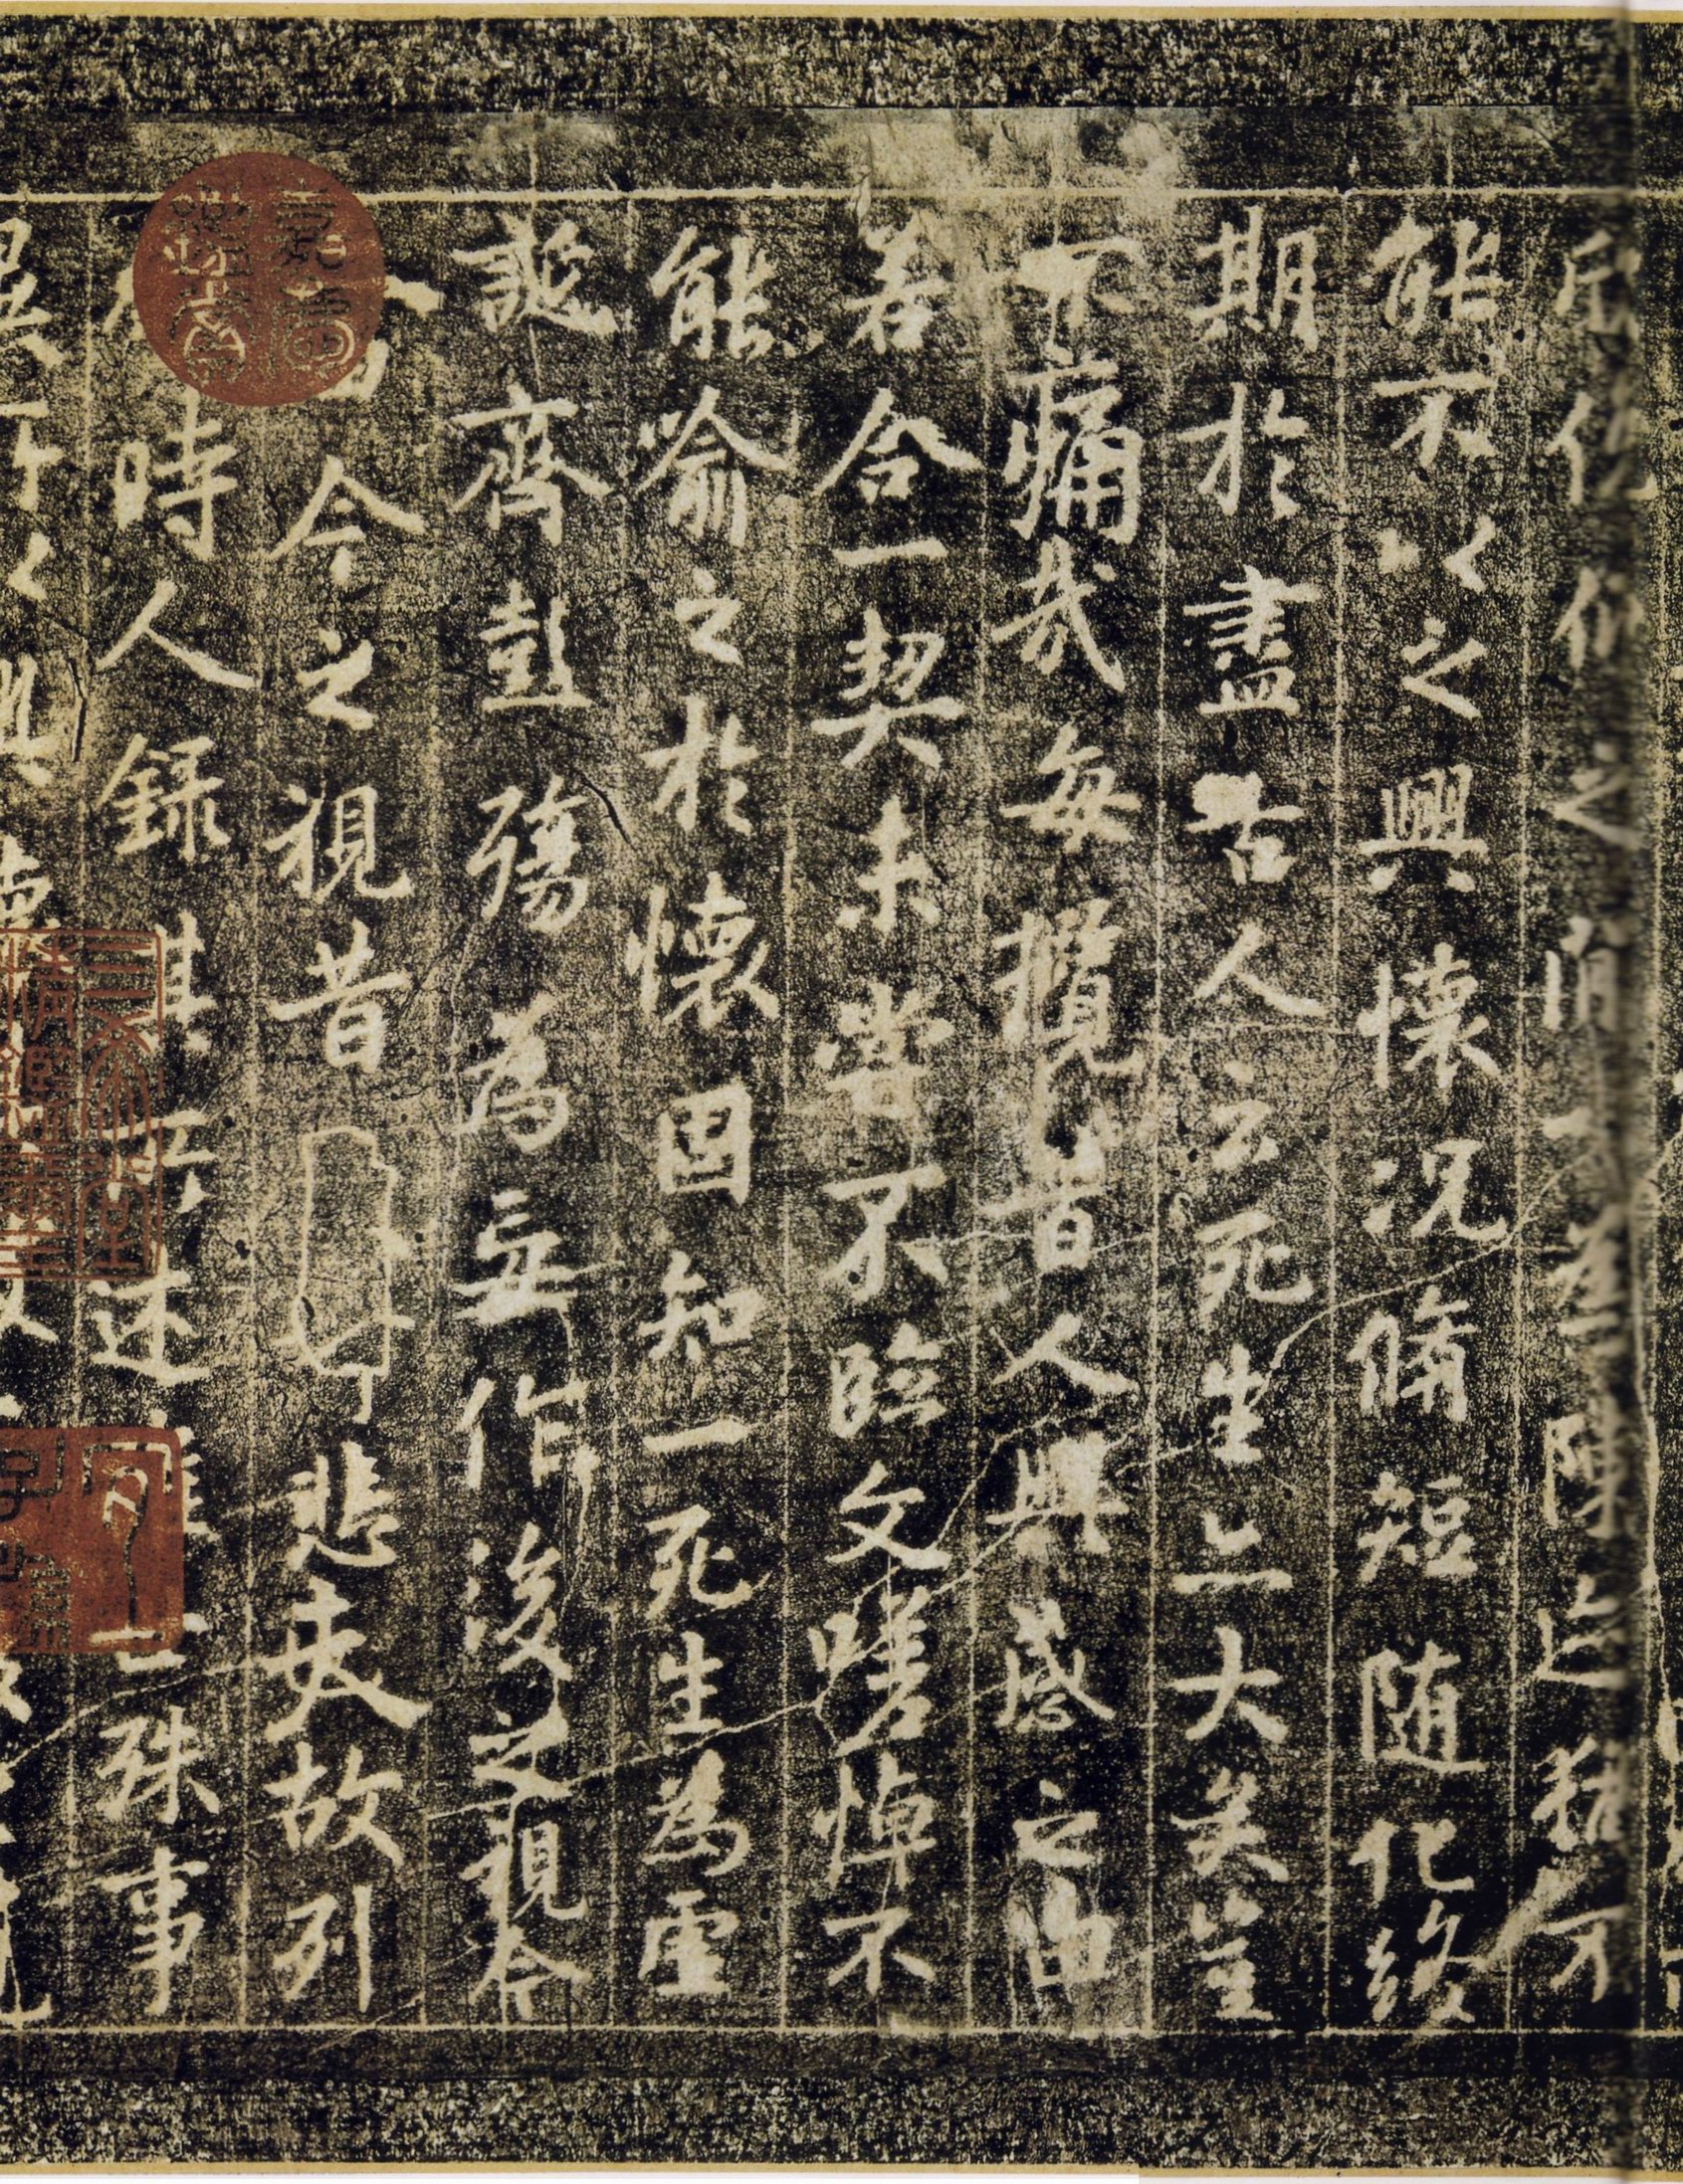 欣俛仰之間以為陳迹猶不
能不以之興懷況脩短随化終
期於盡古人云死生亦大矣豈
不痛哉每攬昔人興感之由
若合一契未嘗不臨文嗟悼不
能喻之於懷固知一死生為虛
誕齊彭殤為妄作後之視今
亦由今之視昔悲夫故列
時人錄其所述雖世殊事
異所以興懷